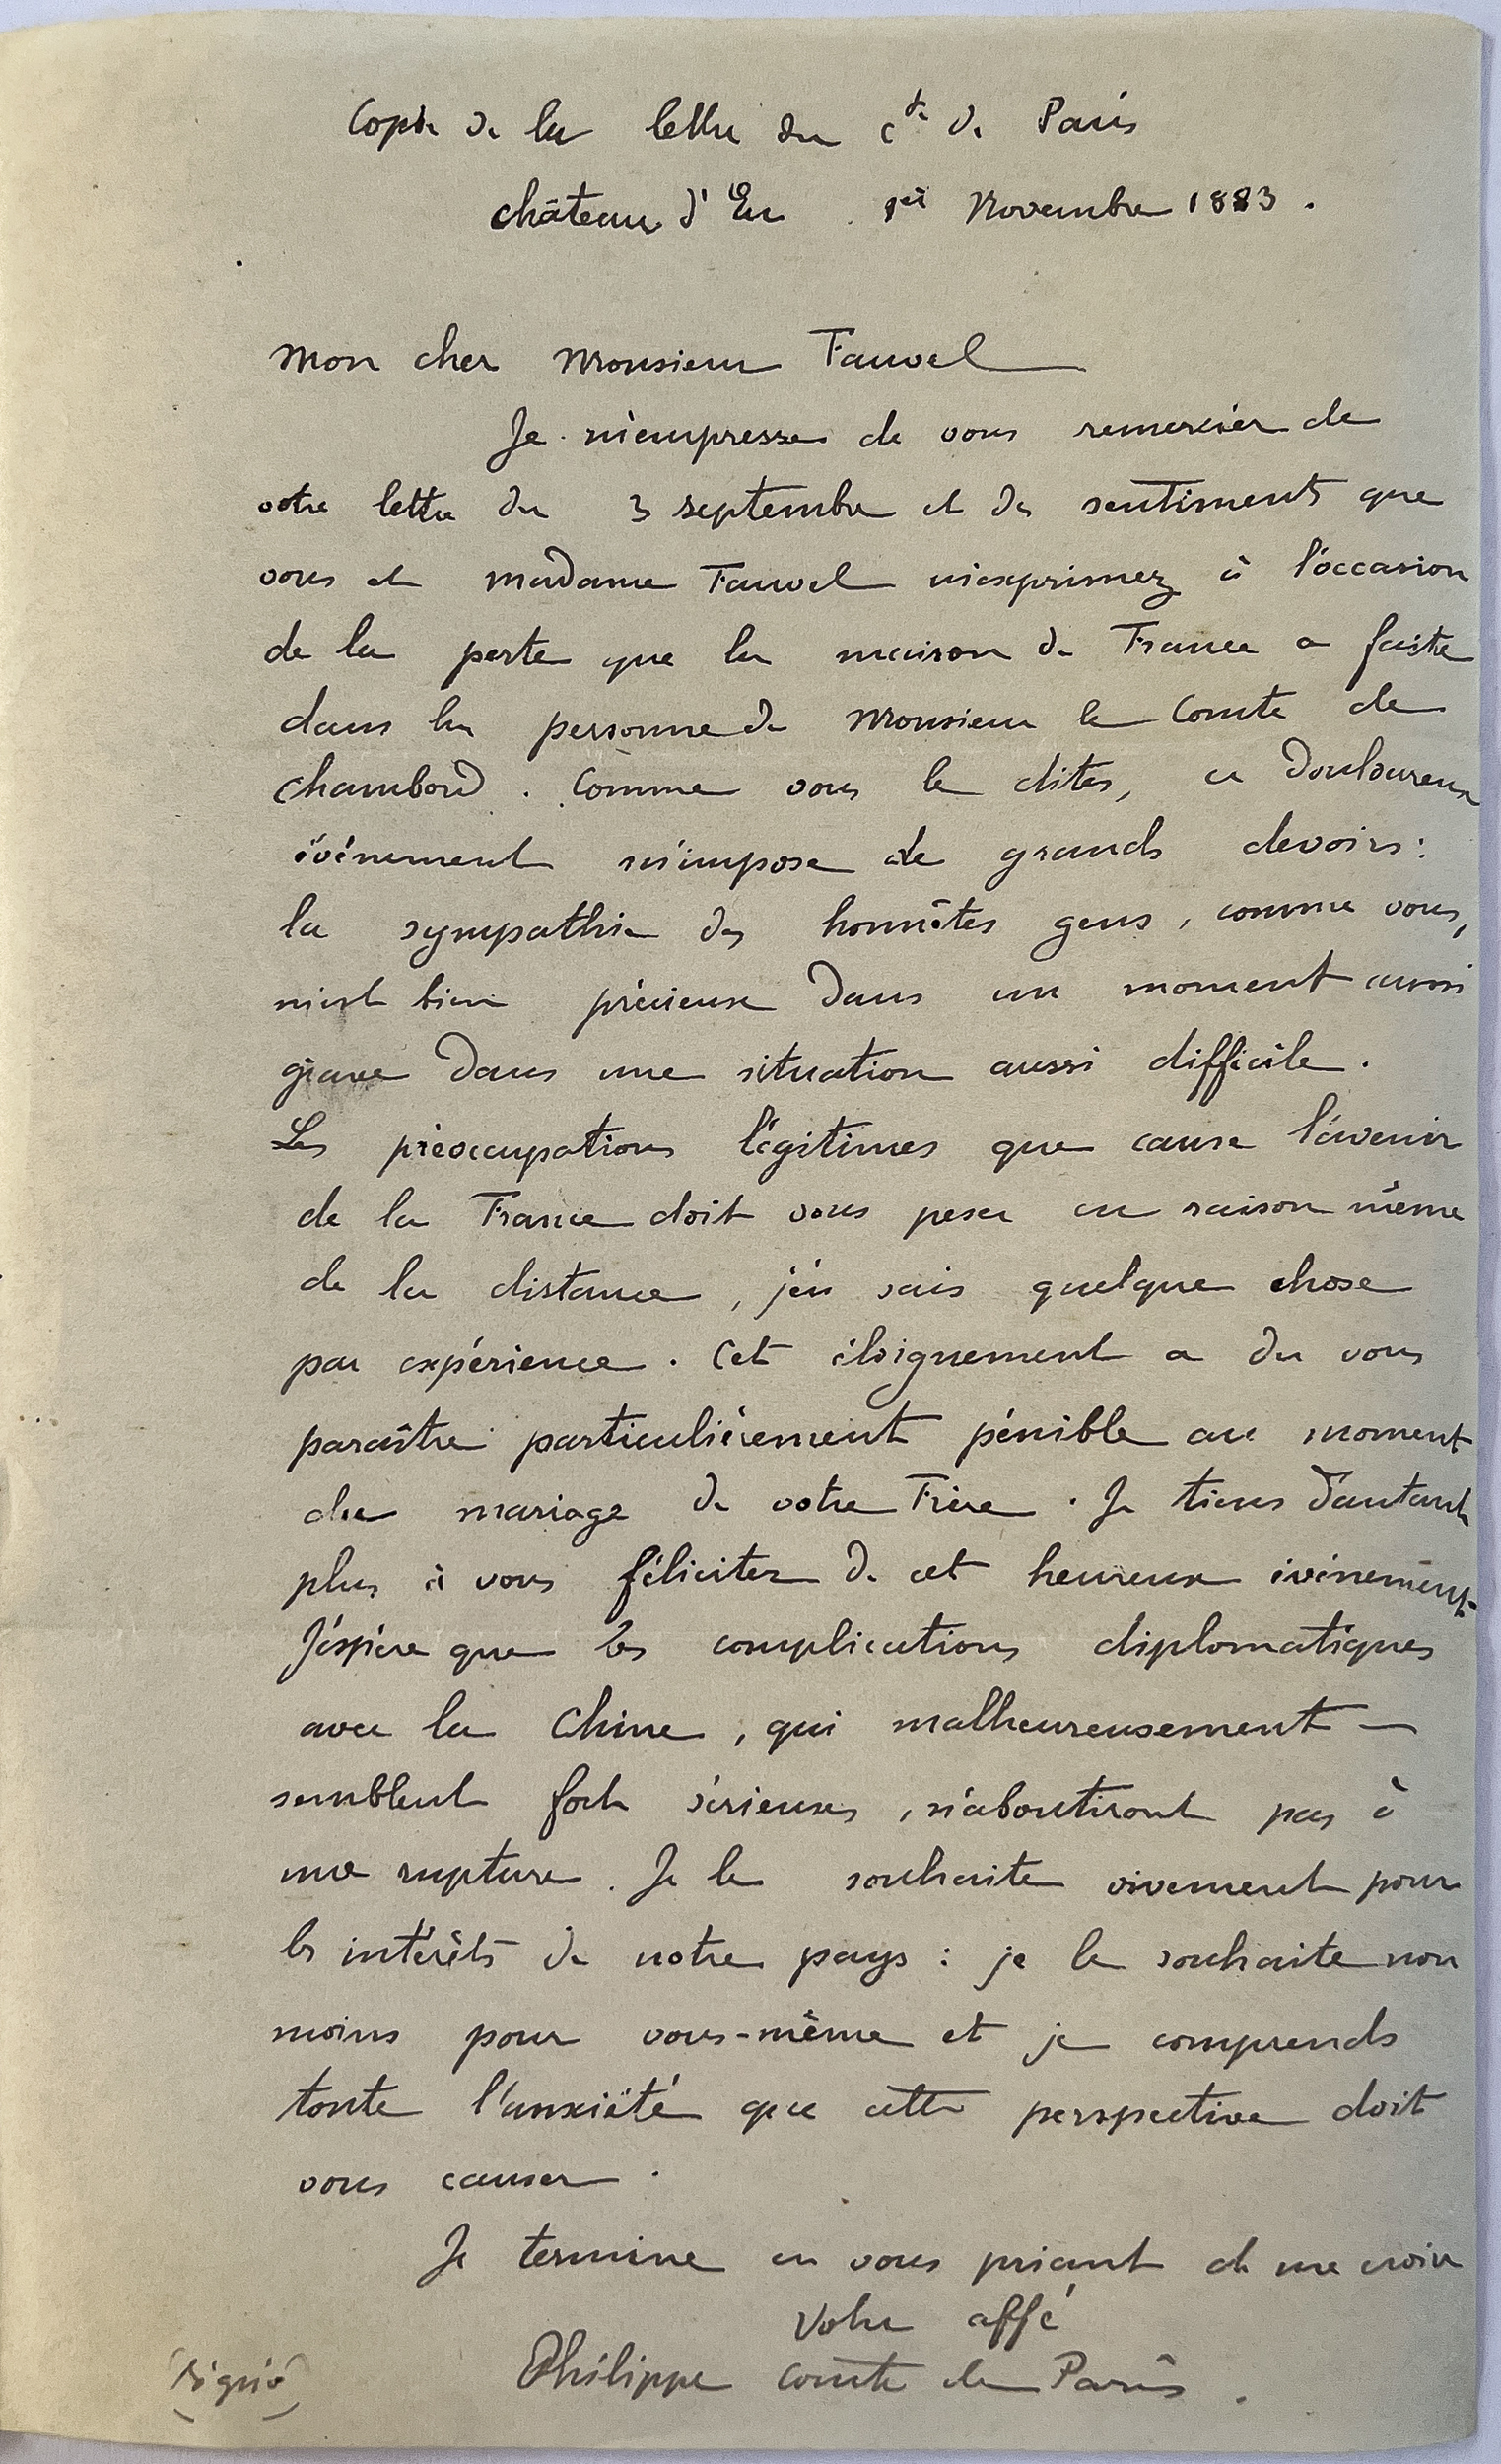 Copie de la lettre du Cte de Paris
château d'Eu . 1er Novembre 1883 .
Mon cher Monsieur Fauvel
Je m'empresse de vous remercier de
votre lettre du 3 septembre et des sentiments que
vous et madame Fauvel m'exprimez à l'occasion
de la perte que la maison de France a faite
dans la personne de Monsieur le Comte de
Chambord . Comme vous le dites, ce douloureux
événement m'impose de grands devoirs :
la sympathie des honnêtes gens , comme vous,
m'est bien précieuse dans un moment aussi
grave dans une situation aussi difficile .
Les préoccupations légitimes que cause l'avenir
de la France doit vous peser en raison même
de la distance , j'en sais quelque chose
par expérience . Cet éloignement a du vous
paraître particulièrement pénible au moment
du mariage de votre Frère . Je tiens d'autant
plus à vous féliciter de cet heureux événement.
J'espère que les complications diplomatiques
avec la Chine , qui malheureusement —
semblent fort sérieuses , n'aboutiront pas à
une rupture . Je le souhaite vivement pour
les intérêts de notre pays : je le souhaite non
moins pour vous-même et je comprends
toute l'anxiété que cette perspective doit
vous causer .
Je termine en vous priant de me croire
Votre affé
(signé) Philippe comte de Paris .